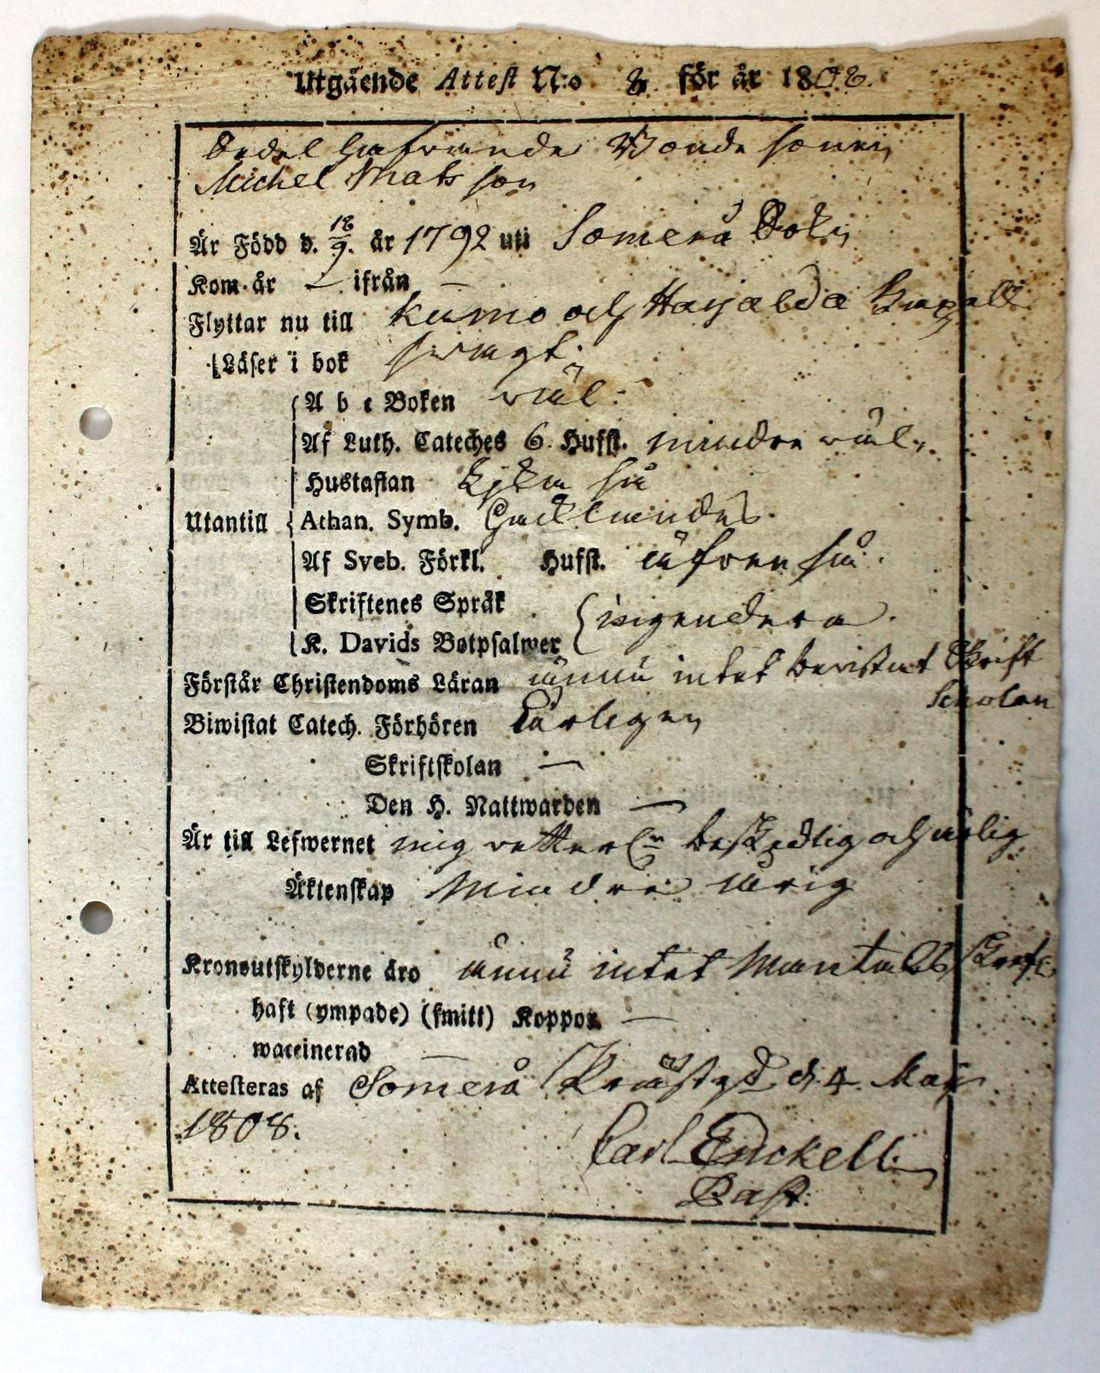 Utgående Attest N:o 8. för år 1808.
Sedel hafwande Bonde sonen
Michel Mats son
Är Född d. 18/9. år 1792 uti Somerå Sokn
Kom år — ifrån —
Flyttar nu till Kumo och Harjalda
Läser i bok swagt.
A b c Boken wäl.
Af Luth. Cateches 6. Hufst. mindre wäl.
Hustaflan
Utantill Athan. Symb.
Af Sveb. Förkl. Hufst. äfwen så.
Skriftenes Språk
K. Davids Botpsalmer ingendera.
Förstår Christendoms Läran ännu intet bevistat Skrift
Scholan
Biwistat Catech. Förhören Årligen
Skriftskolan —
Den H. Nattwarden —
Är till Lefwernet mig vetterl. beskedlig och ärlig
Äktenskap Minderårig
Kronoutskylderne äro ännu intet Mantals
haft (ympade) (smitt) Koppor —
waccinerad —
Attesteras af Somerå Prästgd d. 4. Maj
1808.
Carl Enckell
Past.